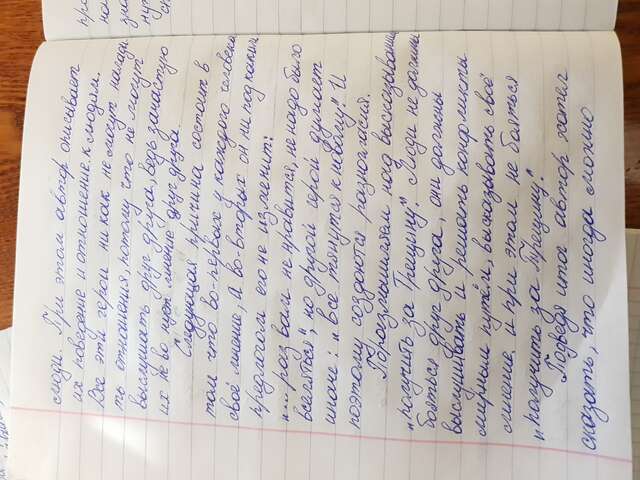 люди. При этом автор описывает
их поведение и отношение к людям.
Все эти герои ни как не могут налади-
ть отношения, потому что не могут
выслушать друг друга, ведь зачастую
их не во мнение друг друга.
Следующая причина состоит в
том что во-первых у каждого человека
своё мнение, а во-вторых он ни под каким
предлогом его не изменит:
"... раз вам не нравится, не надо было
вселяться", но другой герой думает
иначе: "Все тянутся к новому". И
поэтому создаются разногласия.
Поразмышляем над высказыванием
"получить за Трещину". Люди не должны
бояться друг друга, они должны
выслушивать и решать конфликты
мирным путём, высказывать своё
мнение. и при этом не бояться
"получить за Трещину".
Подведя итог автор хотел
сказать, что иногда можно